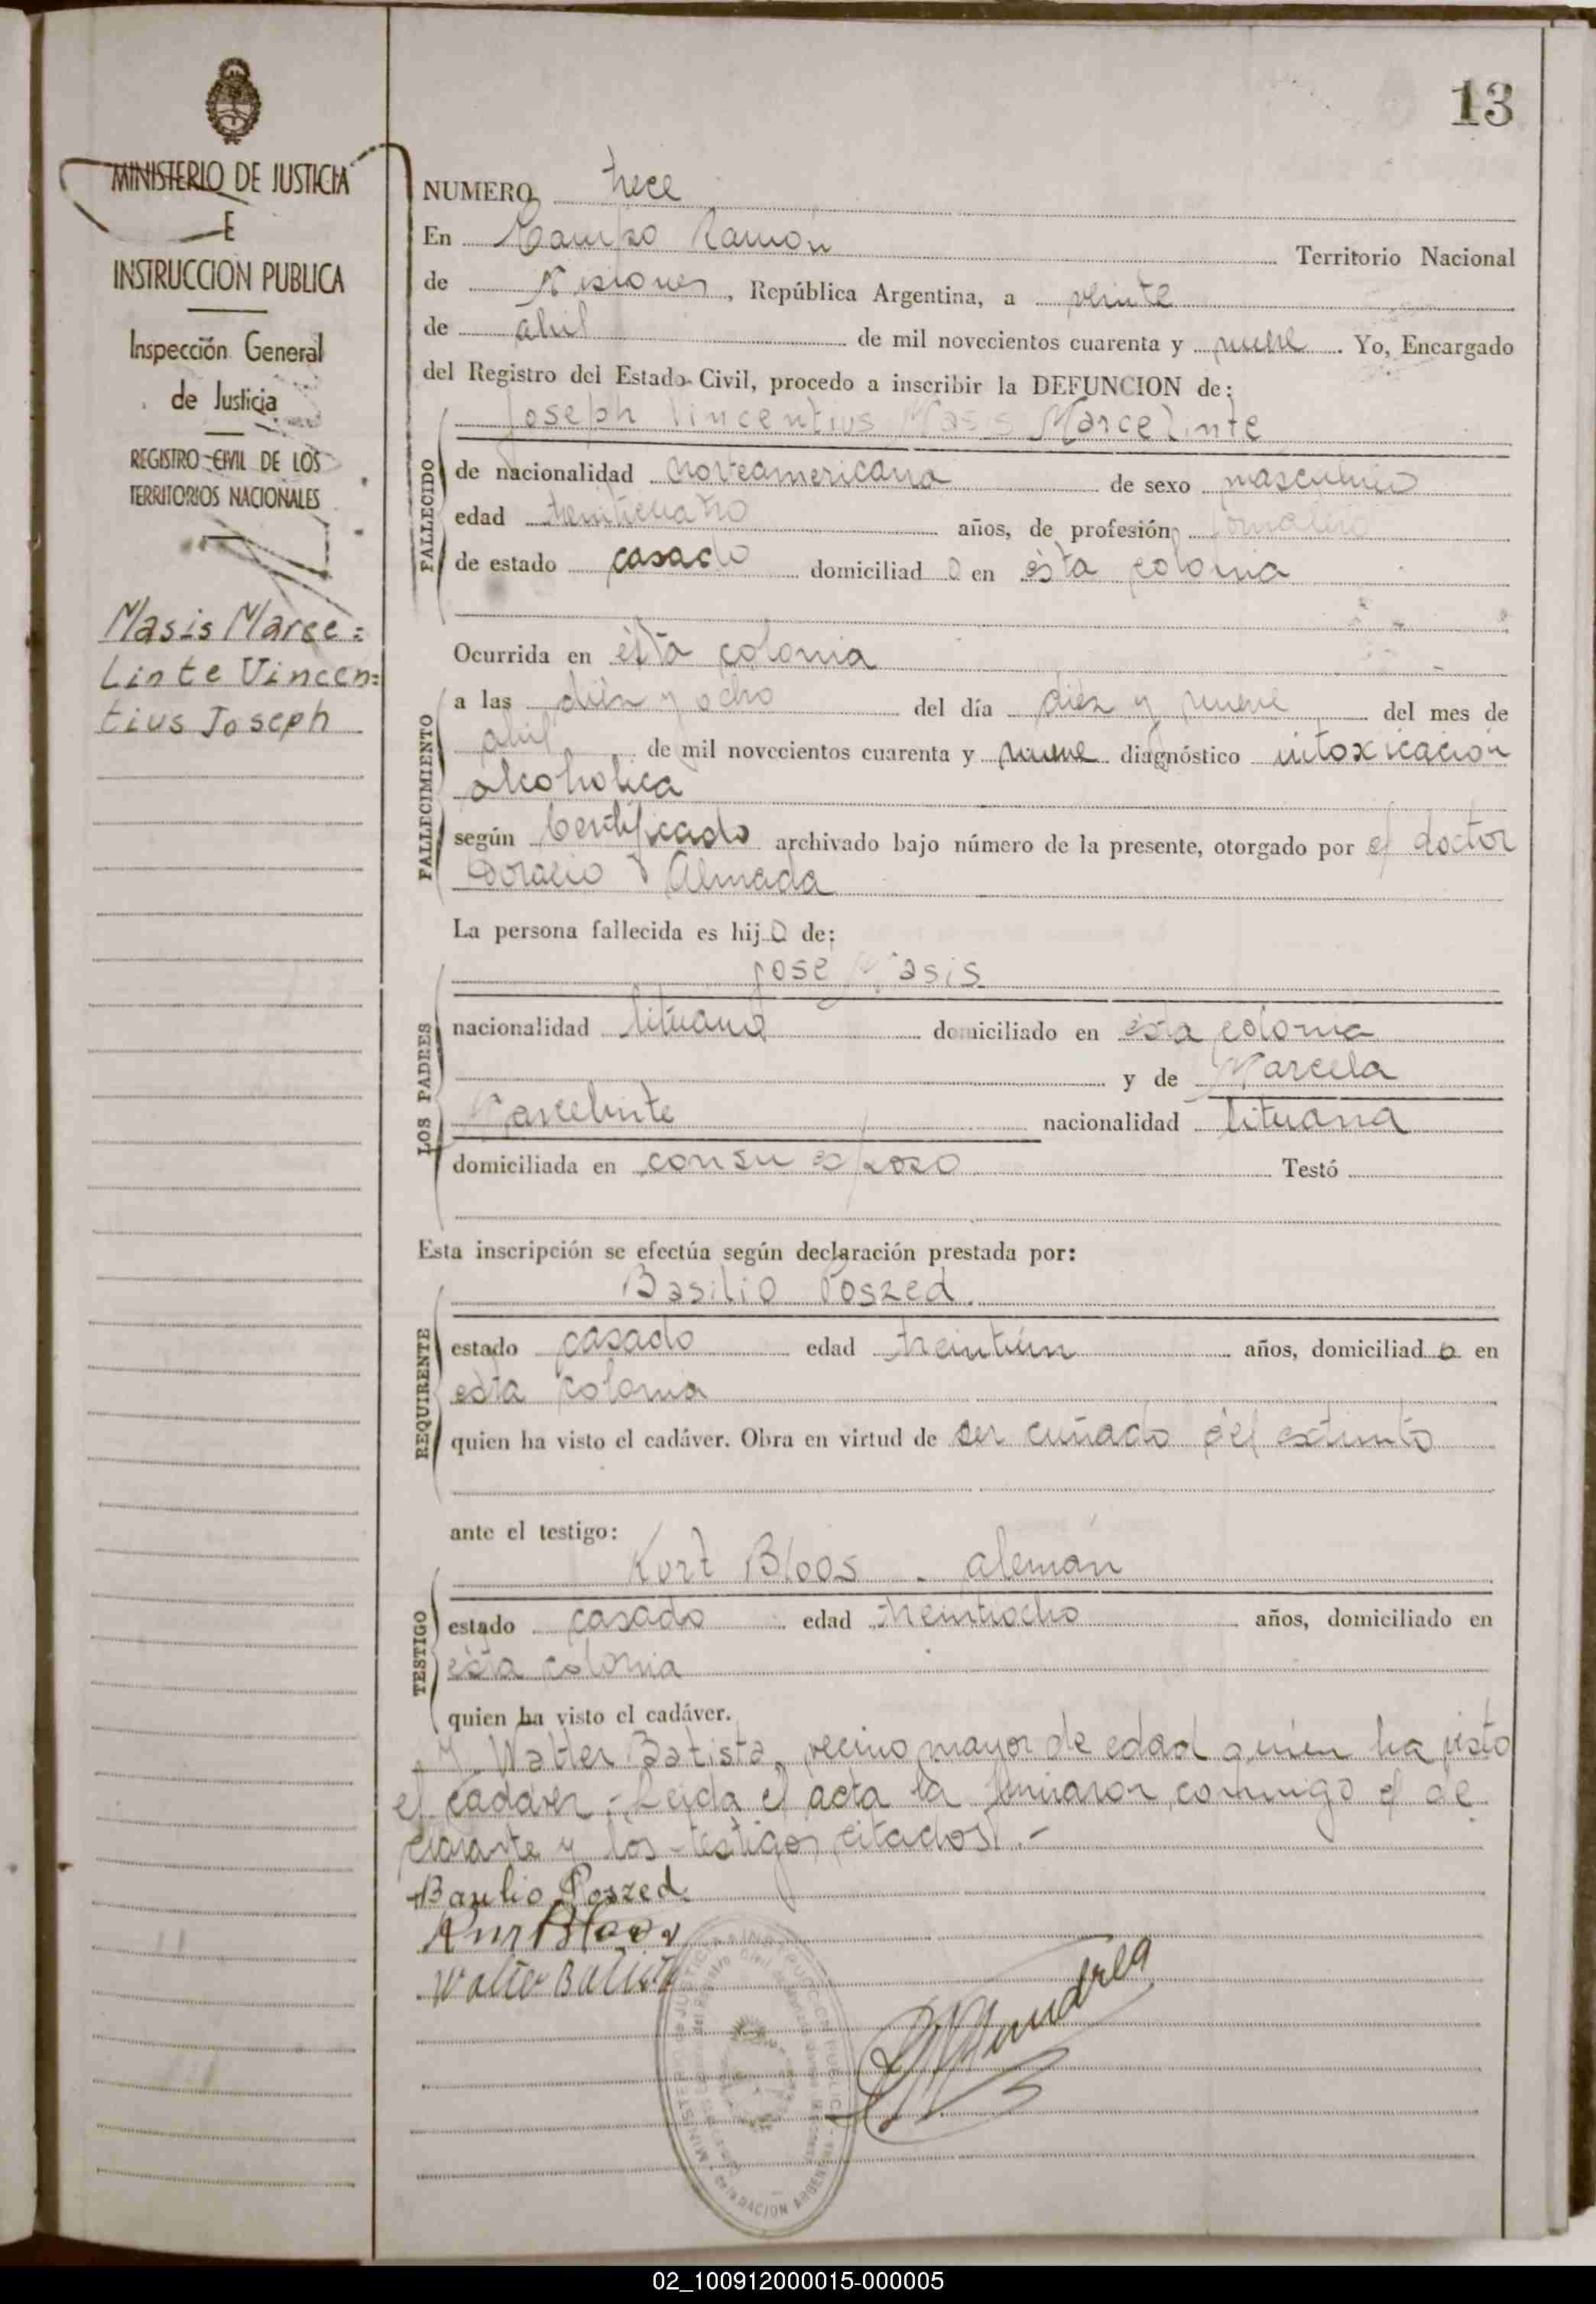 13
MINISTERIO DE JUSTICIA
E
INSTRUCCION PUBLICA
Inspección General
de Justicia
REGISTRO CIVIL DE LOS
TERRITORIOS NACIONALES
Masis Marce=
Linte Vincen=
tius Joseph
NUMERO trece
En Campo Ramón Territorio Nacional
de Misiones, República Argentina, a veinte
de abril de mil novecientos cuarenta y nueve. Yo, Encargado
del Registro del Estado Civil, procedo a inscribir la DEFUNCION de:
Joseph Vincentius Masis Marcelinte
FALLECIDO
de nacionalidad norteamericana de sexo masculino
edad treinticuatro años, de profesión jornalero
de estado casado domiciliad o en ésta colonia
FALLECIMIENTO
Ocurrida en ésta colonia
a las diez y ocho del día diez y nueve del mes de
abril de mil novecientos cuarenta y nueve diagnóstico intoxicación
alcoholica
según Certificado archivado bajo número de la presente, otorgado por el doctor
Almada
La persona fallecida es hij o de:
LOS PADRES
José Masis
nacionalidad lituano domiciliado en ésta colonia
y de Marcela
Marcelinte nacionalidad lituana
domiciliada en con su esposo Testó
Esta inscripción se efectúa según declaración prestada por:
REQUIRENTE
Basilio Poszed.
estado casado edad treintiún años, domiciliad o en
esta colonia
quien ha visto el cadáver. Obra en virtud de ser cuñado del extinto
ante el testigo:
TESTIGO
Kurt Bloos - aleman
estado casado edad treintiocho años, domiciliado en
ésta colonia
quien ha visto el cadáver.
y Walter Batista, vecino mayor de edad quien ha visto
el cadáver.- Leida el acta la firmaron conmigo el de
clarante y los testigos citados.-
Basilio Poszed
Kurt Bloos
Walter Batista
02_100912000015-000005